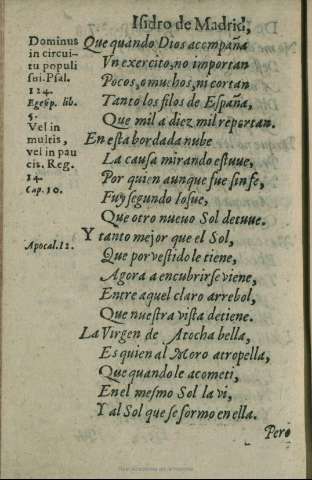 Isidro de Madrid,
Dominus
in circui-
tu populi
sui. Psal.
124.
Egesip. lib.
5.
Vel in
multis,
vel in pau
cis. Reg.
14.
Cap. 10.
Apocal. 12.
Que quando Dios acompaña
Vn exercito, no importan
Pocos, o muchos, ni cortan
Tanto los filos de España,
Que mil a diez mil reportan.
En esta bordada nube
La causa mirando estuue,
Por quien aunque fue sin fe,
Fuy segundo Iosue,
Que otro nueuo Sol detuue.
Y tanto mejor que el Sol,
Que por vestido le tiene,
Agora a encubrirse viene,
Entre aquel claro arrebol,
Que nuestra vista detiene.
La Virgen de Atocha bella,
Es quien al Moro atropella,
Que quando le acometi,
En el mesmo Sol la vi,
Y al Sol que se formo en ella.
Pero